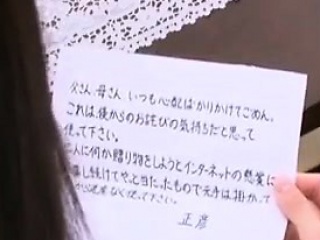 父さん、母さん いつも心配ばかりかけてごめん。
これは、僕からのお詫びの気持ちだと思って
使って下さい。
二人に何か贈り物をしようとインターネットの懸賞に
募し続けてやっと当たったもので元手は掛かって
から遠慮なく使って下さい。
正彦